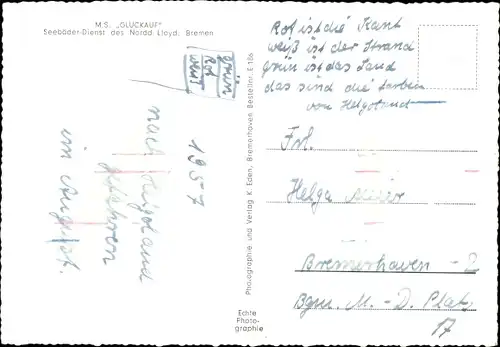 M.S. „GLÜCKAUF"
Seebäder-Dienst des Nordd. Lloyd, Bremen
grün
Rot
weiss
1957
nach Helgoland
gefahren
im August.
Photographie und Verlag K. Eden, Bremerhaven Bestellnr. E 186
Echte
Photo-
graphie
Rot ist die Kant
weiß ist der Strand
grün ist das Land
das sind die Farben
von Helgoland
Frl.
Helga Meier
Bremerhaven - 2
Bgm. M. - D. Platz
17